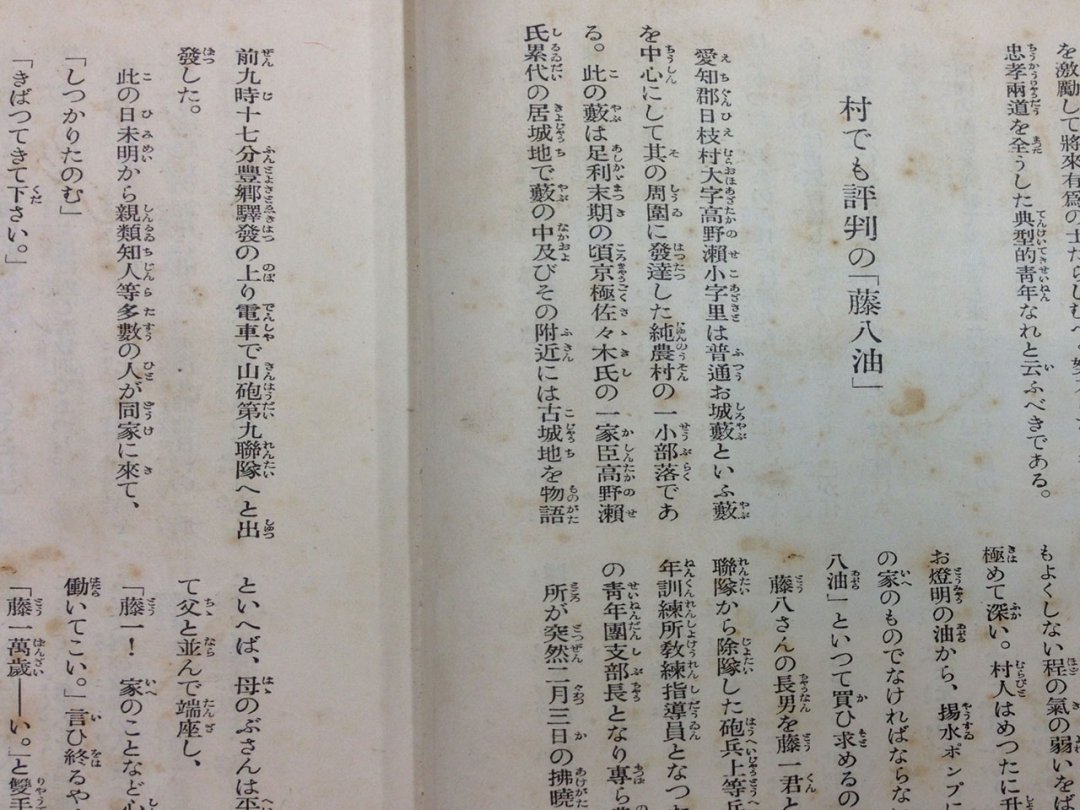 を激勵して將來有爲の士たらしむべ
忠孝兩道を全うした典型的靑年なれと云ふべきである。
村でも評判の「藤八油」
愛知郡日枝村大字高野瀨小字里は普通お城藪といふ藪
を中心にして其の周圍に發達した純農村の一小部落であ
る。此の藪は足利末期の頃京極佐々木氏の一家臣高野瀨
氏累代の居城地で藪の中及びその附近には古城地を物語
もよくしない程の氣の弱いをば
極めて深い。村人はめつたに
お燈明の油から、揚水ポンプに
の家のものでなければならな
八油」といつて買ひ求めるの
藤八さんの長男を藤一君と
聯隊から除隊した砲兵上等兵
年訓練所敎練指導員となつ
の靑年團支部長となり專ら
所が突然二月三日の拂曉
前九時十七分豐鄉驛發の上り電車で山砲第九聯隊へと出
發した。
此の日未明から親類知人等多數の人が同家に來て、
「しつかりたのむ」
「きばつてきて下さい。」
といへば、母のぶさんは
て父と並んで端座し、
「藤一！　家のことなど心
働いてこい。」言ひ終るや
「藤一萬歲――い。」と雙手